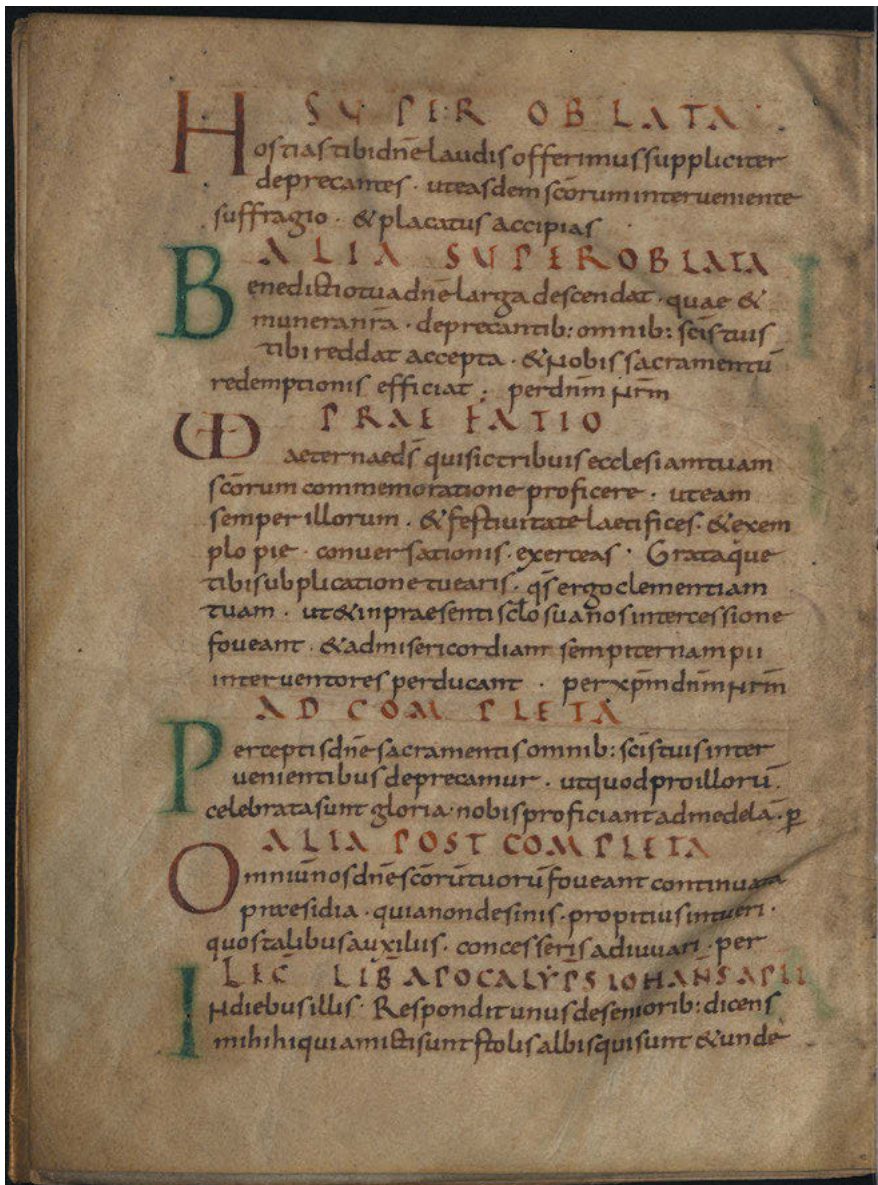 SUPER OBLATA
Hostias tibi dñe laudis offerimus suppliciter
deprecantes · ut easdem scõrum interveniente
suffragio · & placatus accipias
ALIA SUPER OBLATA
Benedictio tua dñe larga descendat · quae &
munera nr̃a · deprecantib: omnib: scĩs tuis
tibi reddat accepta · & nobis sacramentũ
redemptionis efficiat ; per dnm̃ nrm̃
PRAEFATIO
UD aeternae ds̃ qui sic tribuis ecclesiam tuam
scõrum commemoratione proficere · ut eam
semper illorum · & festivitate laetifices · & exem
plo pie · conversationis · exerceas · Grataq̃ue
tibi subplicatione tuearis · qs̃ ergo clementiam
tuam · ut & in praesenti sclo suanos intercessione
foveant · & ad misericordiam sempiternam pii
interventores perducant · per xpm̃ dnm̃ nrm̃
AD COMPLETA
Perceptis dñe sacramentis omnib: scĩs tuis inter
venientibus deprecamur · ut quod pro illorũ ·
celebrata sunt gloria · nobis proficiant ad medelã · p̱
ALIA POST COMPLETA
Omniũ nos dñe scõrũ tuorũ foveant continuata
praesidia · quia non desinis · propitius intueri ·
quos talibus auxiliis · concesseris adiuvari · per
LEC̃ LIB̃ APOCALYPS IOHANÑS APLI
In diebus illis · Respondit unus de seniorib: dicens
mihi hi qui amicti sunt stolis albis qui sunt & unde